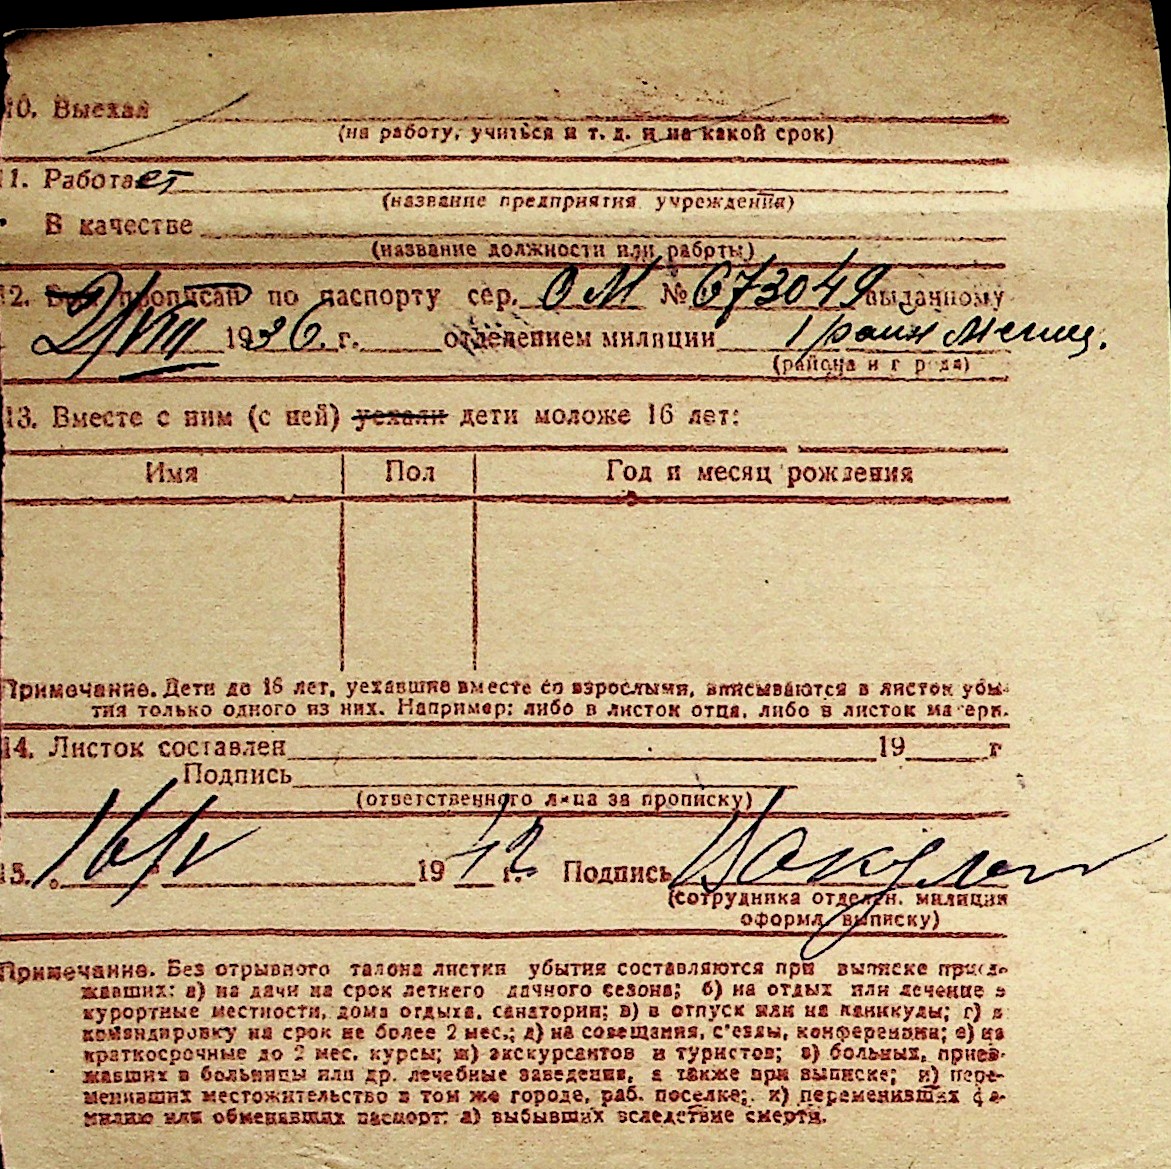 10. Выехал
(на работу, учиться и т. д. и на какой срок)
11. Работает
(название предприятия учреждения)
В качестве
(название должности или работы)
12. Был прописан по паспорту сер. ОМ № 673049 выданному
2/VIII 1936. г. отделением милиции 1 район
(района и города)
13. Вместе с ним (с ней) уехали дети моложе 16 лет:
Имя Пол Год и месяц рождения
Примечание. Дети до 16 лет, уехавшие вместе со взрослыми, вписываются в листок убы-
тия только одного из них. Например: либо в листок отца, либо в листок матери.
14. Листок составлен 19 г
Подпись
(ответственного лица за прописку)
15. 16/V 1942 г. Подпись
(сотрудника отделен. милиции
оформл. выписку)
Примечание. Без отрывного талона листки убытия составляются при выписке приез-
жавших: а) на дачи на срок летнего дачного сезона; б) на отдых или лечение в
курортные местности, дома отдыха, санатории; в) в отпуск или на каникулы; г) в
командировку на срок не более 2 мес.; д) на совещания, с'езды, конференции; е) на
краткосрочные до 2 мес. курсы; ж) экскурсантов и туристов; з) больных, приез-
жавших в больницы или др. лечебные заведения, а также при выписке; и) пере-
менивших местожительство в том же городе, раб. поселке; к) переменивших фа-
милию или обменявших паспорт: л) выбывших вследствие смерти.